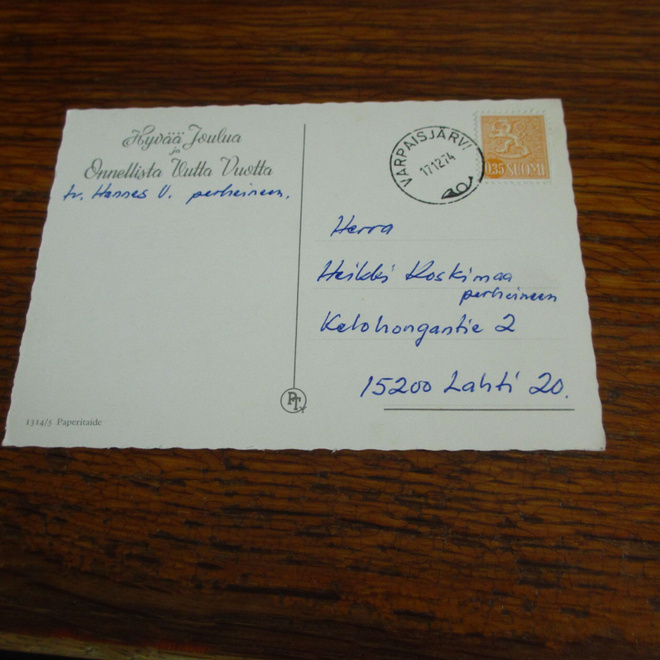 Hyvää Joulua
ja
Onnellista Uutta Vuotta
tv. Hannes V. perheineen.
1314/5 Paperitaide
PT
VARPAISJÄRVI
17.12.74
0,35 SUOMI
Herra
Heikki Koskimaa
perheineen
Kelohongantie 2
15200 Lahti 20.